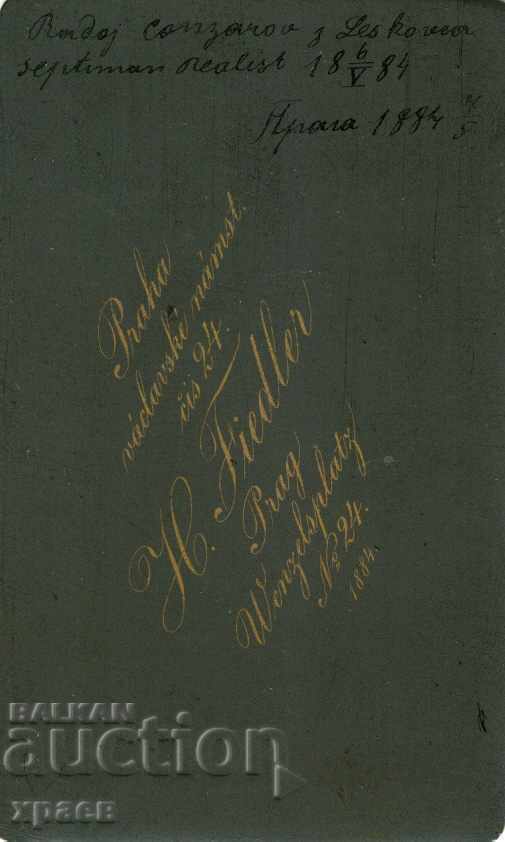 Radoj conzarov z Leskovca
septiman realist 18 6/V 84
Прага 1884
Praha
václavské námst.
čís 24.
H. Fiedler
Prag
Wenzelsplatz
No 24.
1884.
BALKAN
auction
храев